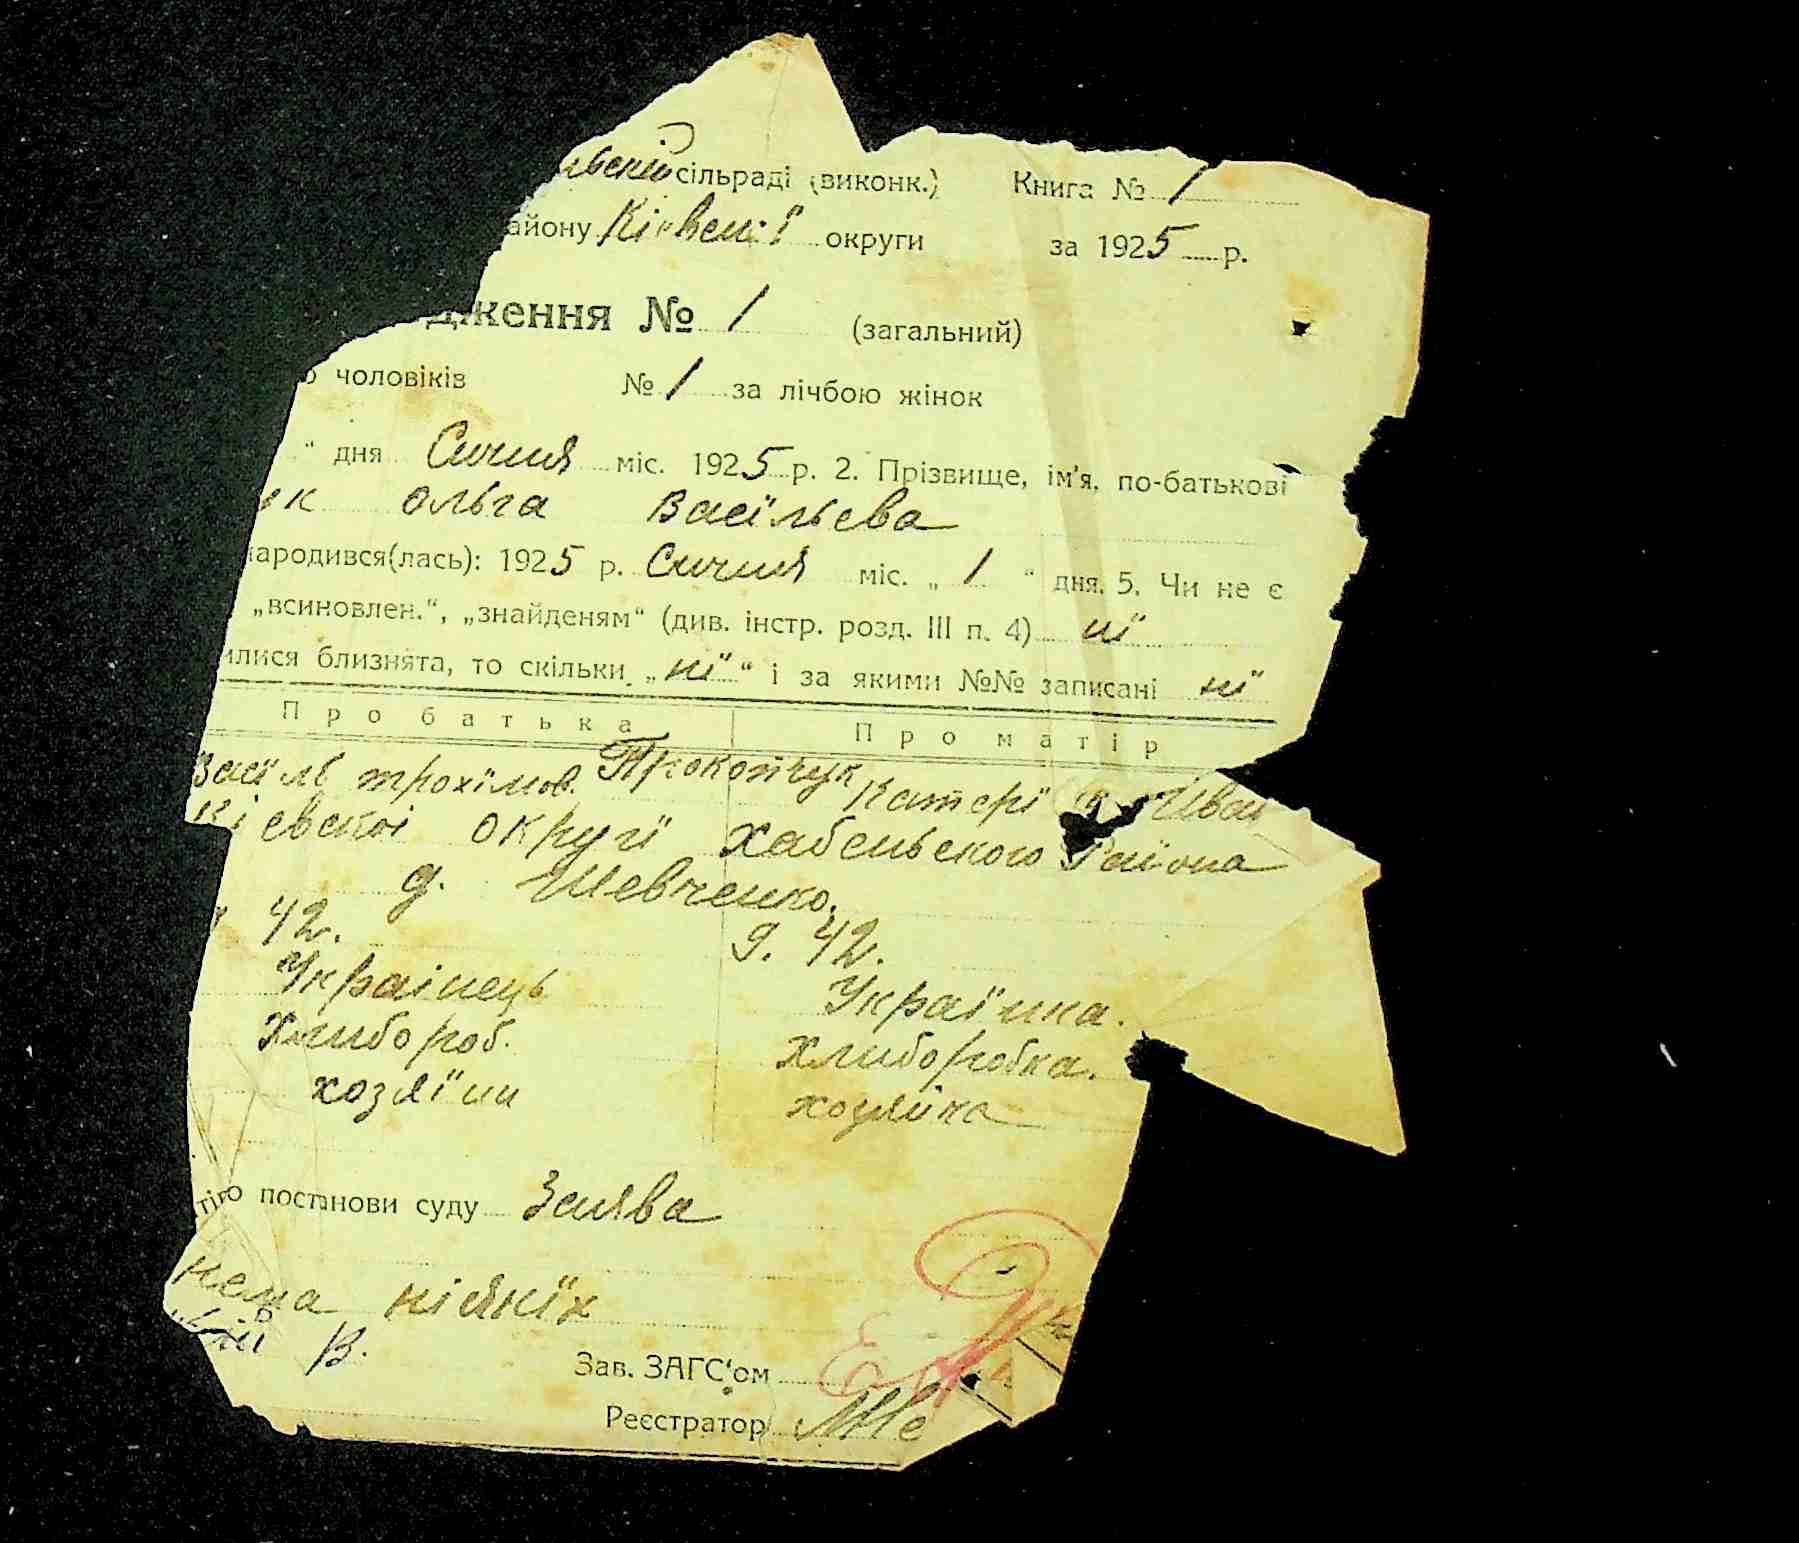 сільраді (виконк.) Книга № 1
айону Київської округи за 1925 р.
дження № 1 (загальний)
о чоловіків № 1 за лічбою жінок
" дня Сичня міс. 1925 р. 2. Прізвище, ім'я, по-батькові
ук Ольга Васїльева
народився(лась): 1925 р. Сичня міс. „ 1 " дня. 5. Чи не є
„всиновлен.", „знайденям" (див. інстр. розд. III п. 4) нї
илися близнята, то скільки „нї" і за якими №№ записані нї
Про батька Про матір
Васїль трохїмов. Прокопчук Катерї Иван
Кіевскої округї Хабенського Района
д. Шевченко.
42. д. 42.
Українець Українка.
Хлибороб. Хлиборобка.
хозяїин хозяйка
постанови суду Заява
нема ніякїх
В.
Зав. ЗАГС'ом
Реєстратор